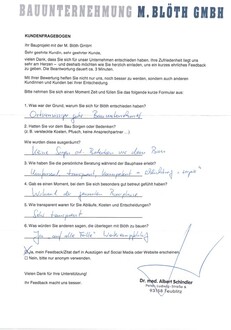 BAUUNTERNEHMUNG M. BLÖTH GMBH
KUNDENFRAGEBOGEN
Ihr Bauprojekt mit der M. Blöth GmbH
Sehr geehrte Kundin, sehr geehrter Kunde,
vielen Dank, dass Sie sich für unser Unternehmen entschieden haben. Ihre Zufriedenheit liegt uns
sehr am Herzen – und deshalb möchten wir Sie herzlich einladen, uns ein kurzes ehrliches Feedback
zu geben. Die Beantwortung dauert ca. 3 Minuten.
Mit Ihrer Bewertung helfen Sie nicht nur uns, noch besser zu werden, sondern auch anderen
Kundinnen und Kunden bei Ihrer Entscheidung.
Bitte nehmen Sie sich einen Moment Zeit und füllen Sie das folgende kurze Formular aus:
1. Was war der Grund, warum Sie sich für Blöth entschieden haben?
2. Hatten Sie vor dem Bau Sorgen oder Bedenken?
(z. B. versteckte Kosten, Pfusch, keine Ansprechpartner …)
Wie wurden diese ausgeräumt?
Keine Sorgen od. Bedenken vor dem Bau
3. Wie haben Sie die persönliche Betreuung während der Bauphase erlebt?
4. Gab es einen Moment, bei dem Sie sich besonders gut betreut gefühlt haben?
Während der gesamten Bauphase
5. Wie transparent waren für Sie Abläufe, Kosten und Entscheidungen?
Sehr transparent
6. Was würden Sie anderen sagen, die überlegen mit Blöth zu bauen?
Ja, mein Feedback darf in Auszügen auf Social Media oder Website erscheinen
Nein, bitte nur anonym verwenden.
Vielen Dank für Ihre Unterstützung!
Ihr Feedback macht uns besser.
Dr. med. Albert Schindler
93158 Teublitz